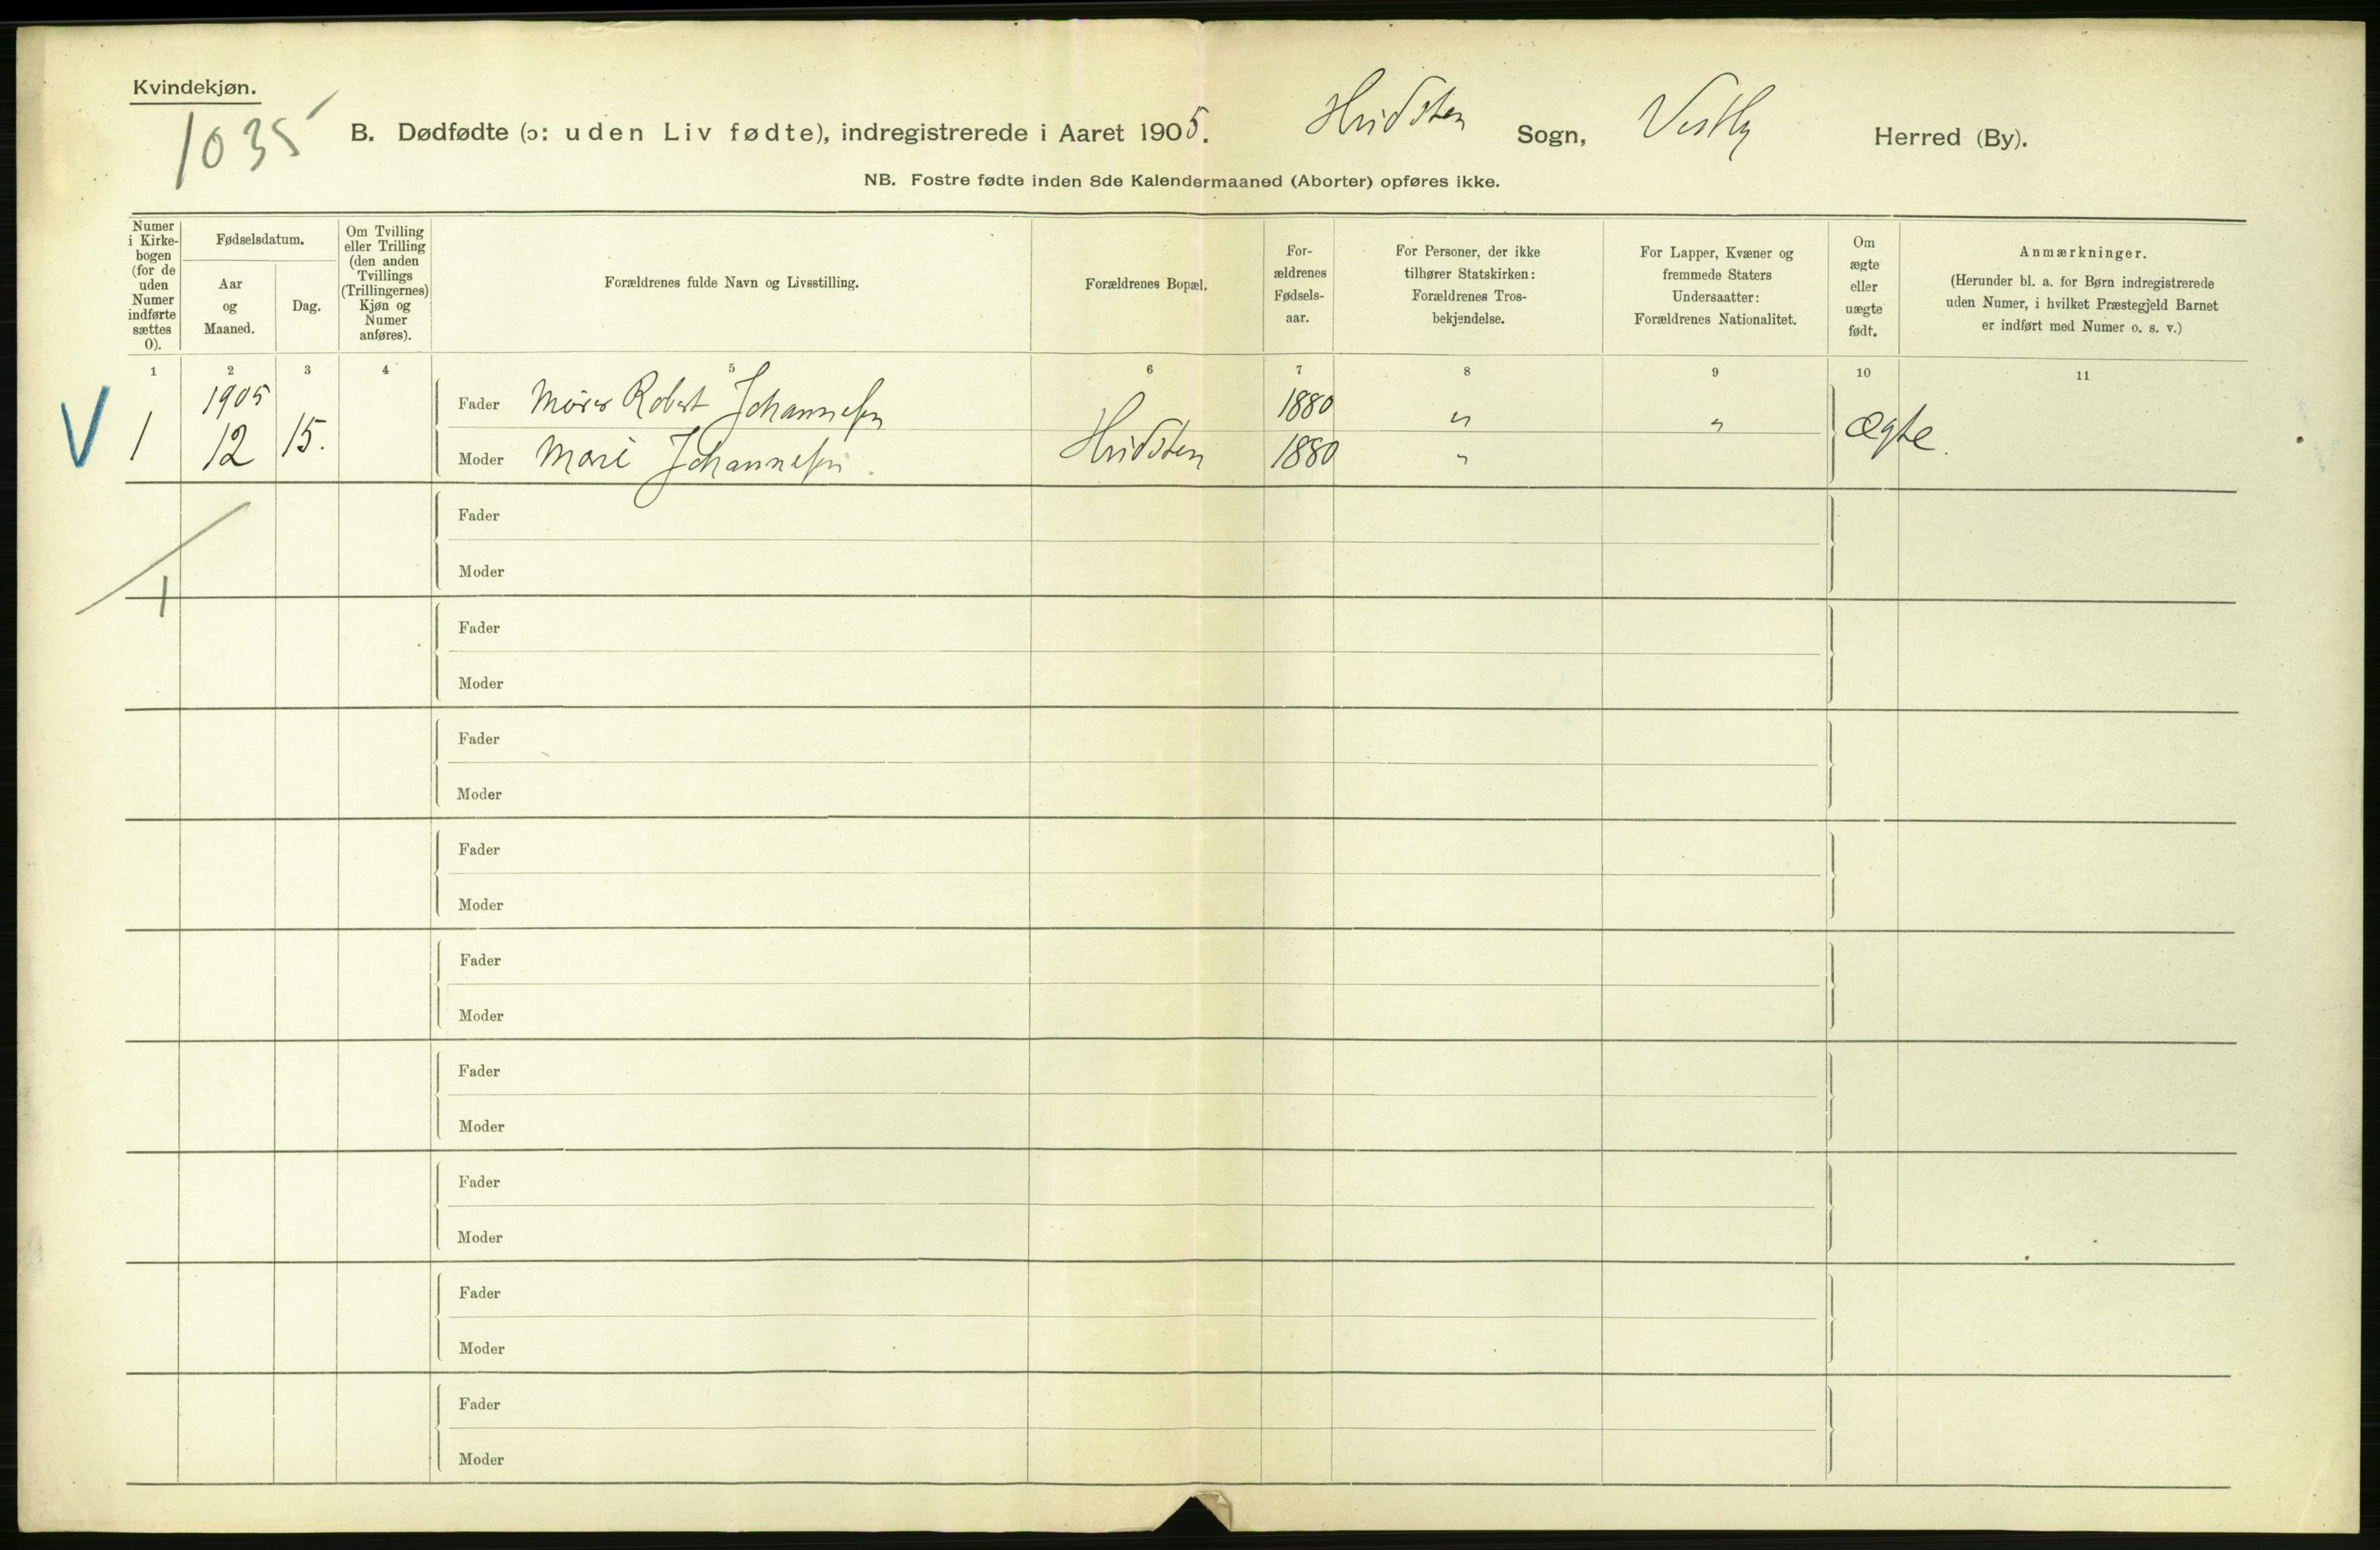 Kvindekjøn.
1035
B. Dødfødte (ɔ: uden Liv fødte), indregistrerede i Aaret 1905. Hvidsten Sogn, Vestby Herred (By).
NB. Fostre fødte inden 8de Kalendermaaned (Aborter) opføres ikke.
Numer
i Kirke-
bogen
(for de
uden
Numer
indførte
sættes
0).
Fødselsdatum.
Aar
og
Maaned.
Dag.
Om Tvilling
eller Trilling
(den anden
Tvillings
(Trillingernes)
Kjøn og
Numer
anføres).
Forældrenes fulde Navn og Livsstilling.
Forældrenes Bopæl.
For-
ældrenes
Fødsels-
aar.
For Personer, der ikke
tilhører Statskirken:
Forældrenes Tros-
bekjendelse.
For Lapper, Kvæner og
fremmede Staters
Undersaatter:
Forældrenes Nationalitet.
Om
ægte
eller
uægte
født.
Anmærkninger.
(Herunder bl. a. for Børn indregistrerede
uden Numer, i hvilket Præstegjeld Barnet
er indført med Numer o. s. v.)
1 2 3 4 5 6 7 8 9 10 11
V 1 1905 12 15.
Fader Robert Johannesen 1880 " "
Moder Marie Johannesen. Hvidsten 1880 " Ægte.
Fader
Moder
1
Fader
Moder
Fader
Moder
Fader
Moder
Fader
Moder
Fader
Moder
Fader
Moder
Fader
Moder
Fader
Moder